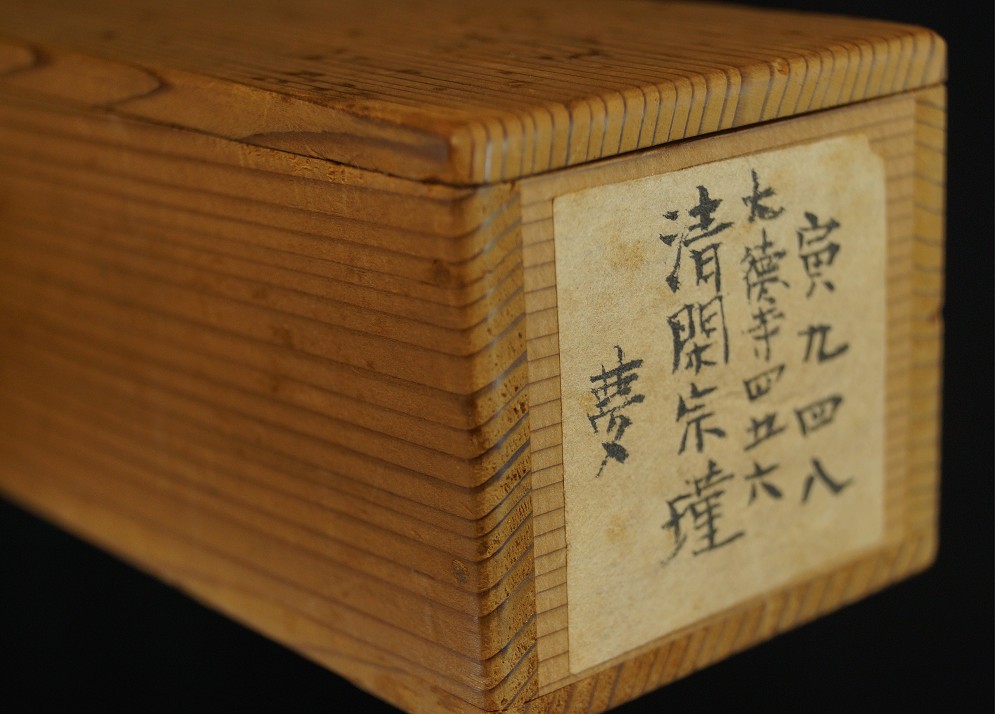 寅九四八
大徳寺四五六
清閑宗瑾
夢